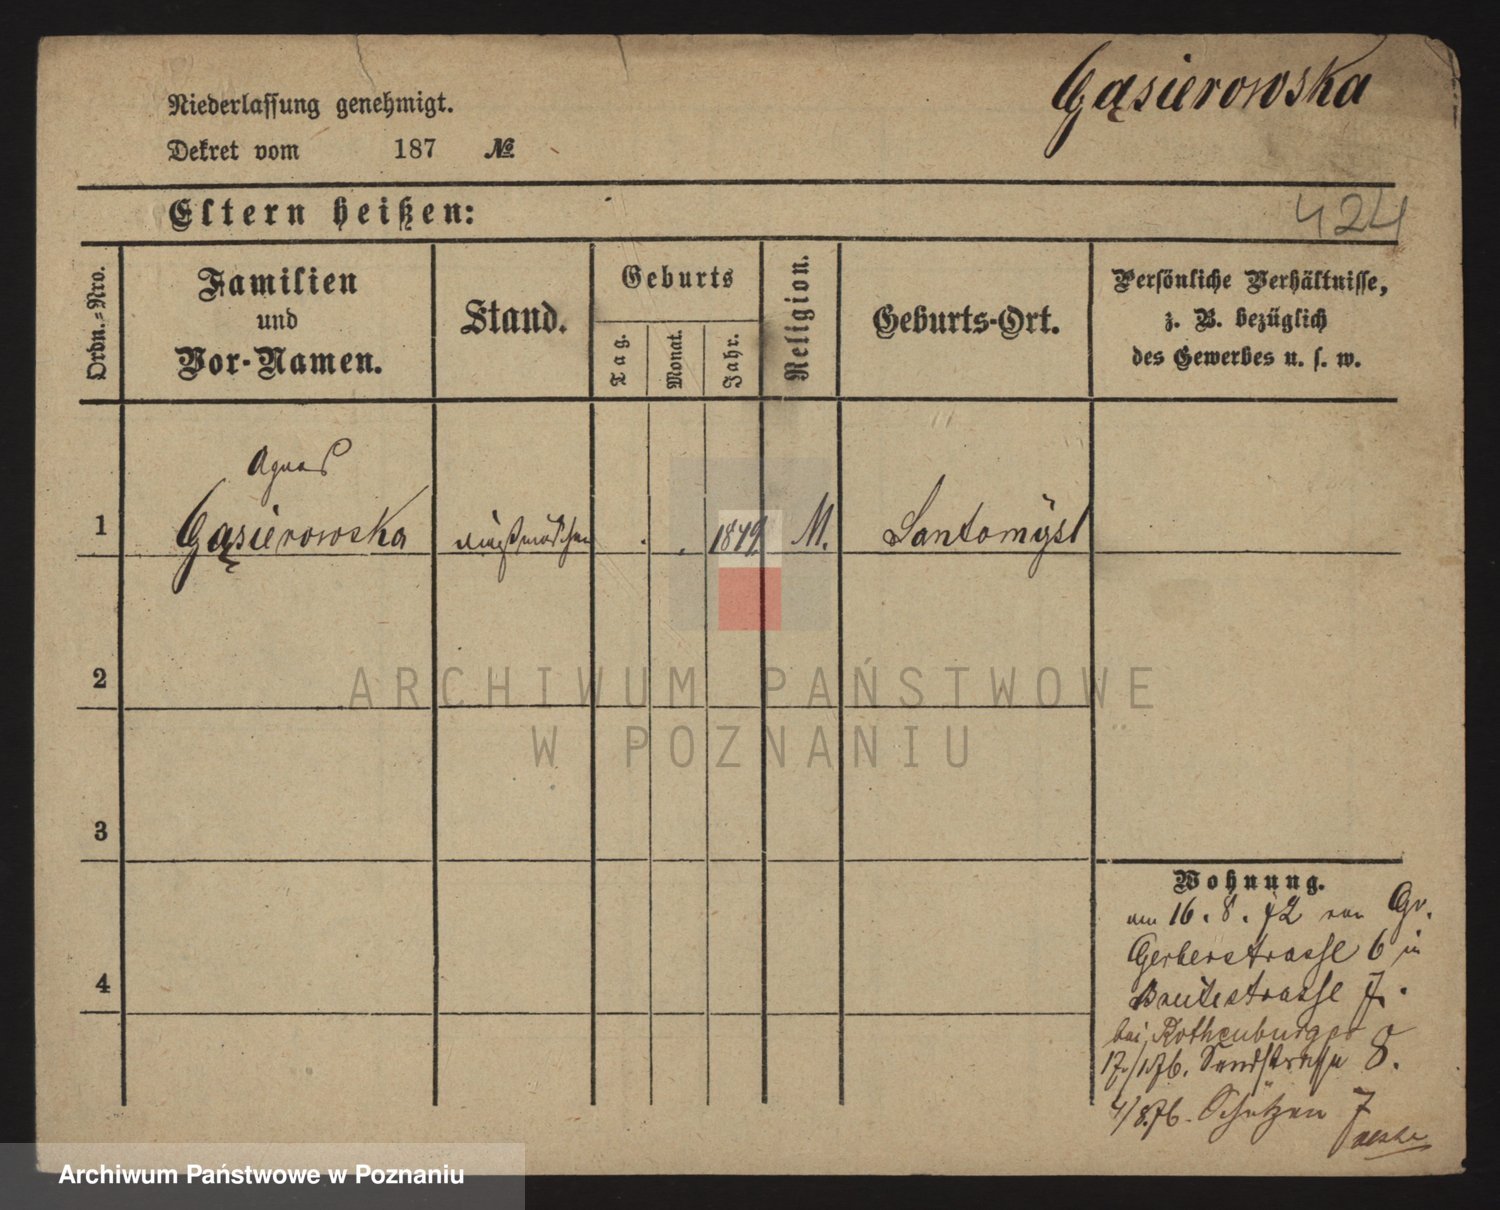 Gąsierowska
Niederlassung genehmigt.
Dekret vom 187 №
Eltern heißen:
424
Ordn.-Nro.
Familien
und
Vor-Namen.
Stand.
Geburts
Tag.
Monat.
Jahr.
Religion.
Geburts-Ort.
Persönliche Verhältnisse,
z. B. bezüglich
des Gewerbes u. s. w.
Agnes
1 Gąsierowska 1849 Santomÿsl
2
3
4
Wohnung.
am 16. 8. 72 von Gr.
Gerberstrasse 6 in
Breitestrasse 7.
bei Rothenburger
17/1.76. Sandstrasse 8.
4/8.76. Schützen 7
ARCHIWUM PAŃSTWOWE
W POZNANIU
Archiwum Państwowe w Poznaniu